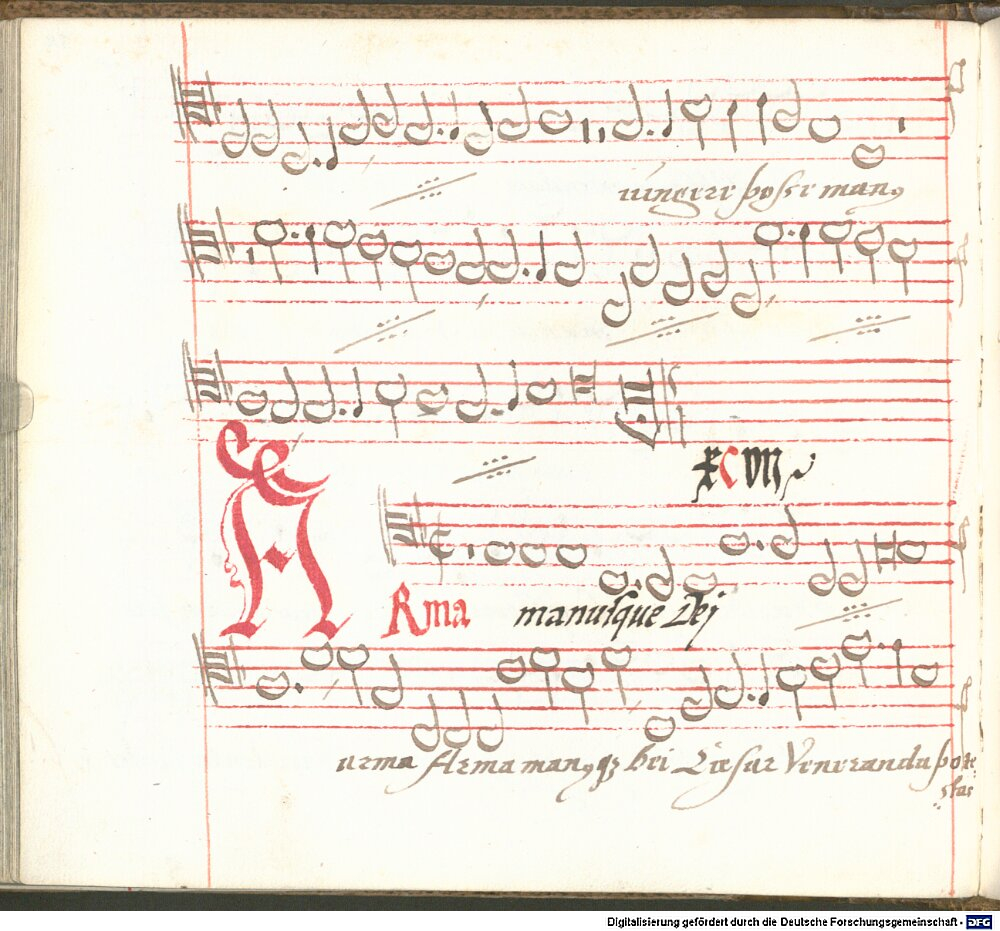 iungere posse man9
XCVII
ARma manusque Dej
arma Arma man9q3 hei Cæsar Veneranda pote
stas
Digitalisierung gefördert durch die Deutsche Forschungsgemeinschaft - DFG